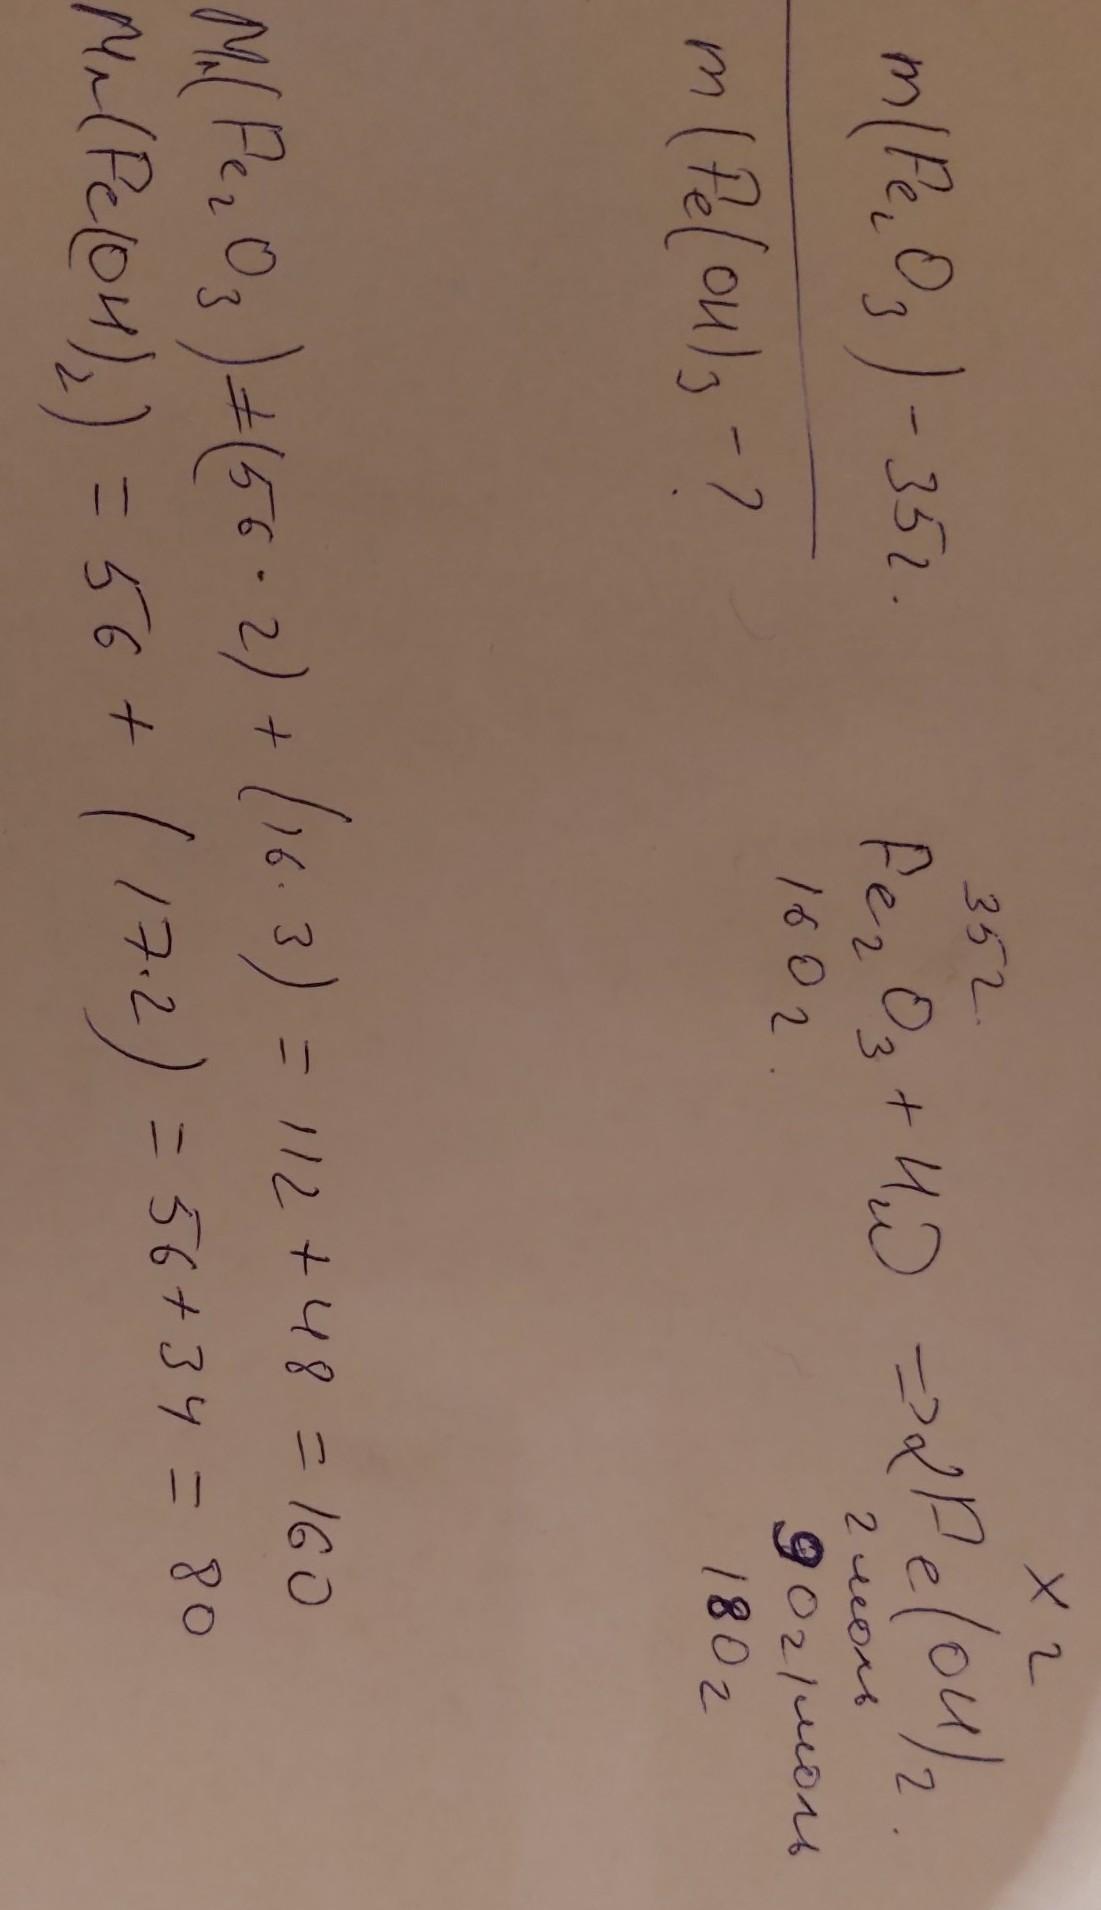 m(Fe₂O₃) - 35г.
m(Fe(OH)₃ - ?
35г. x г
Fe₂O₃ + H₂O => 2Fe(OH)₂.
160г. 2 моль
90г/моль
180г
Mr(Fe₂O₃) = (56·2) + (16·3) = 112 + 48 = 160
Mr(Fe(OH)₂) = 56 + (17·2) = 56 + 34 = 80